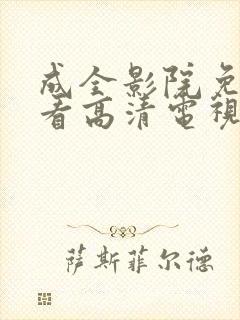 成全影院免
看高清電視
萨斯菲尔德